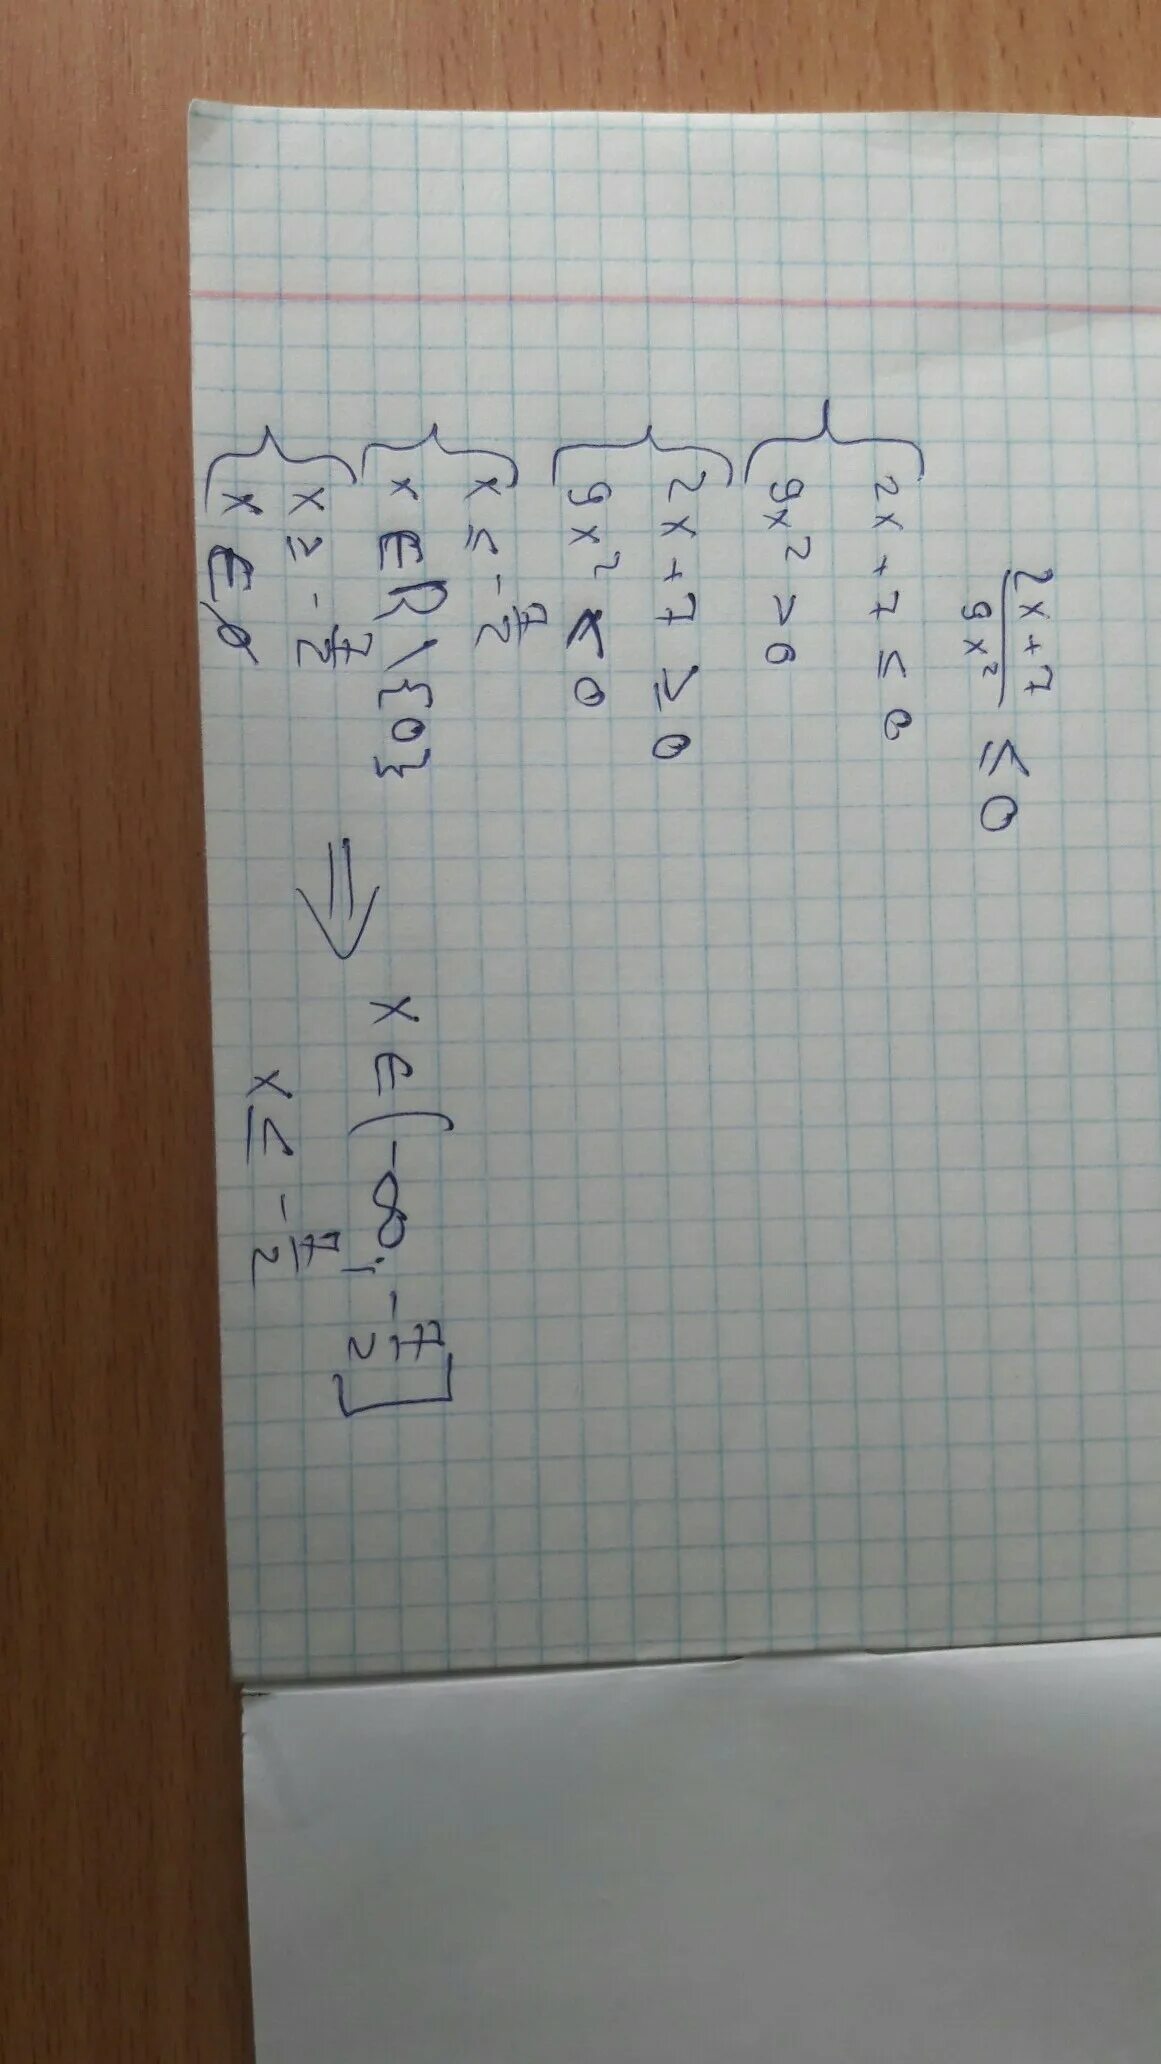 (2x+7)/(9x²) ≤ 0
{ 2x+7 ≤ 0
9x² > 0
{ 2x+7 ≥ 0
9x² < 0
{ x ≤ -7/2
x ∈ R \ {0}
{ x ≥ -7/2
x ∈ ∅
⇒ x ∈ (-∞; -7/2]
x ≤ -7/2